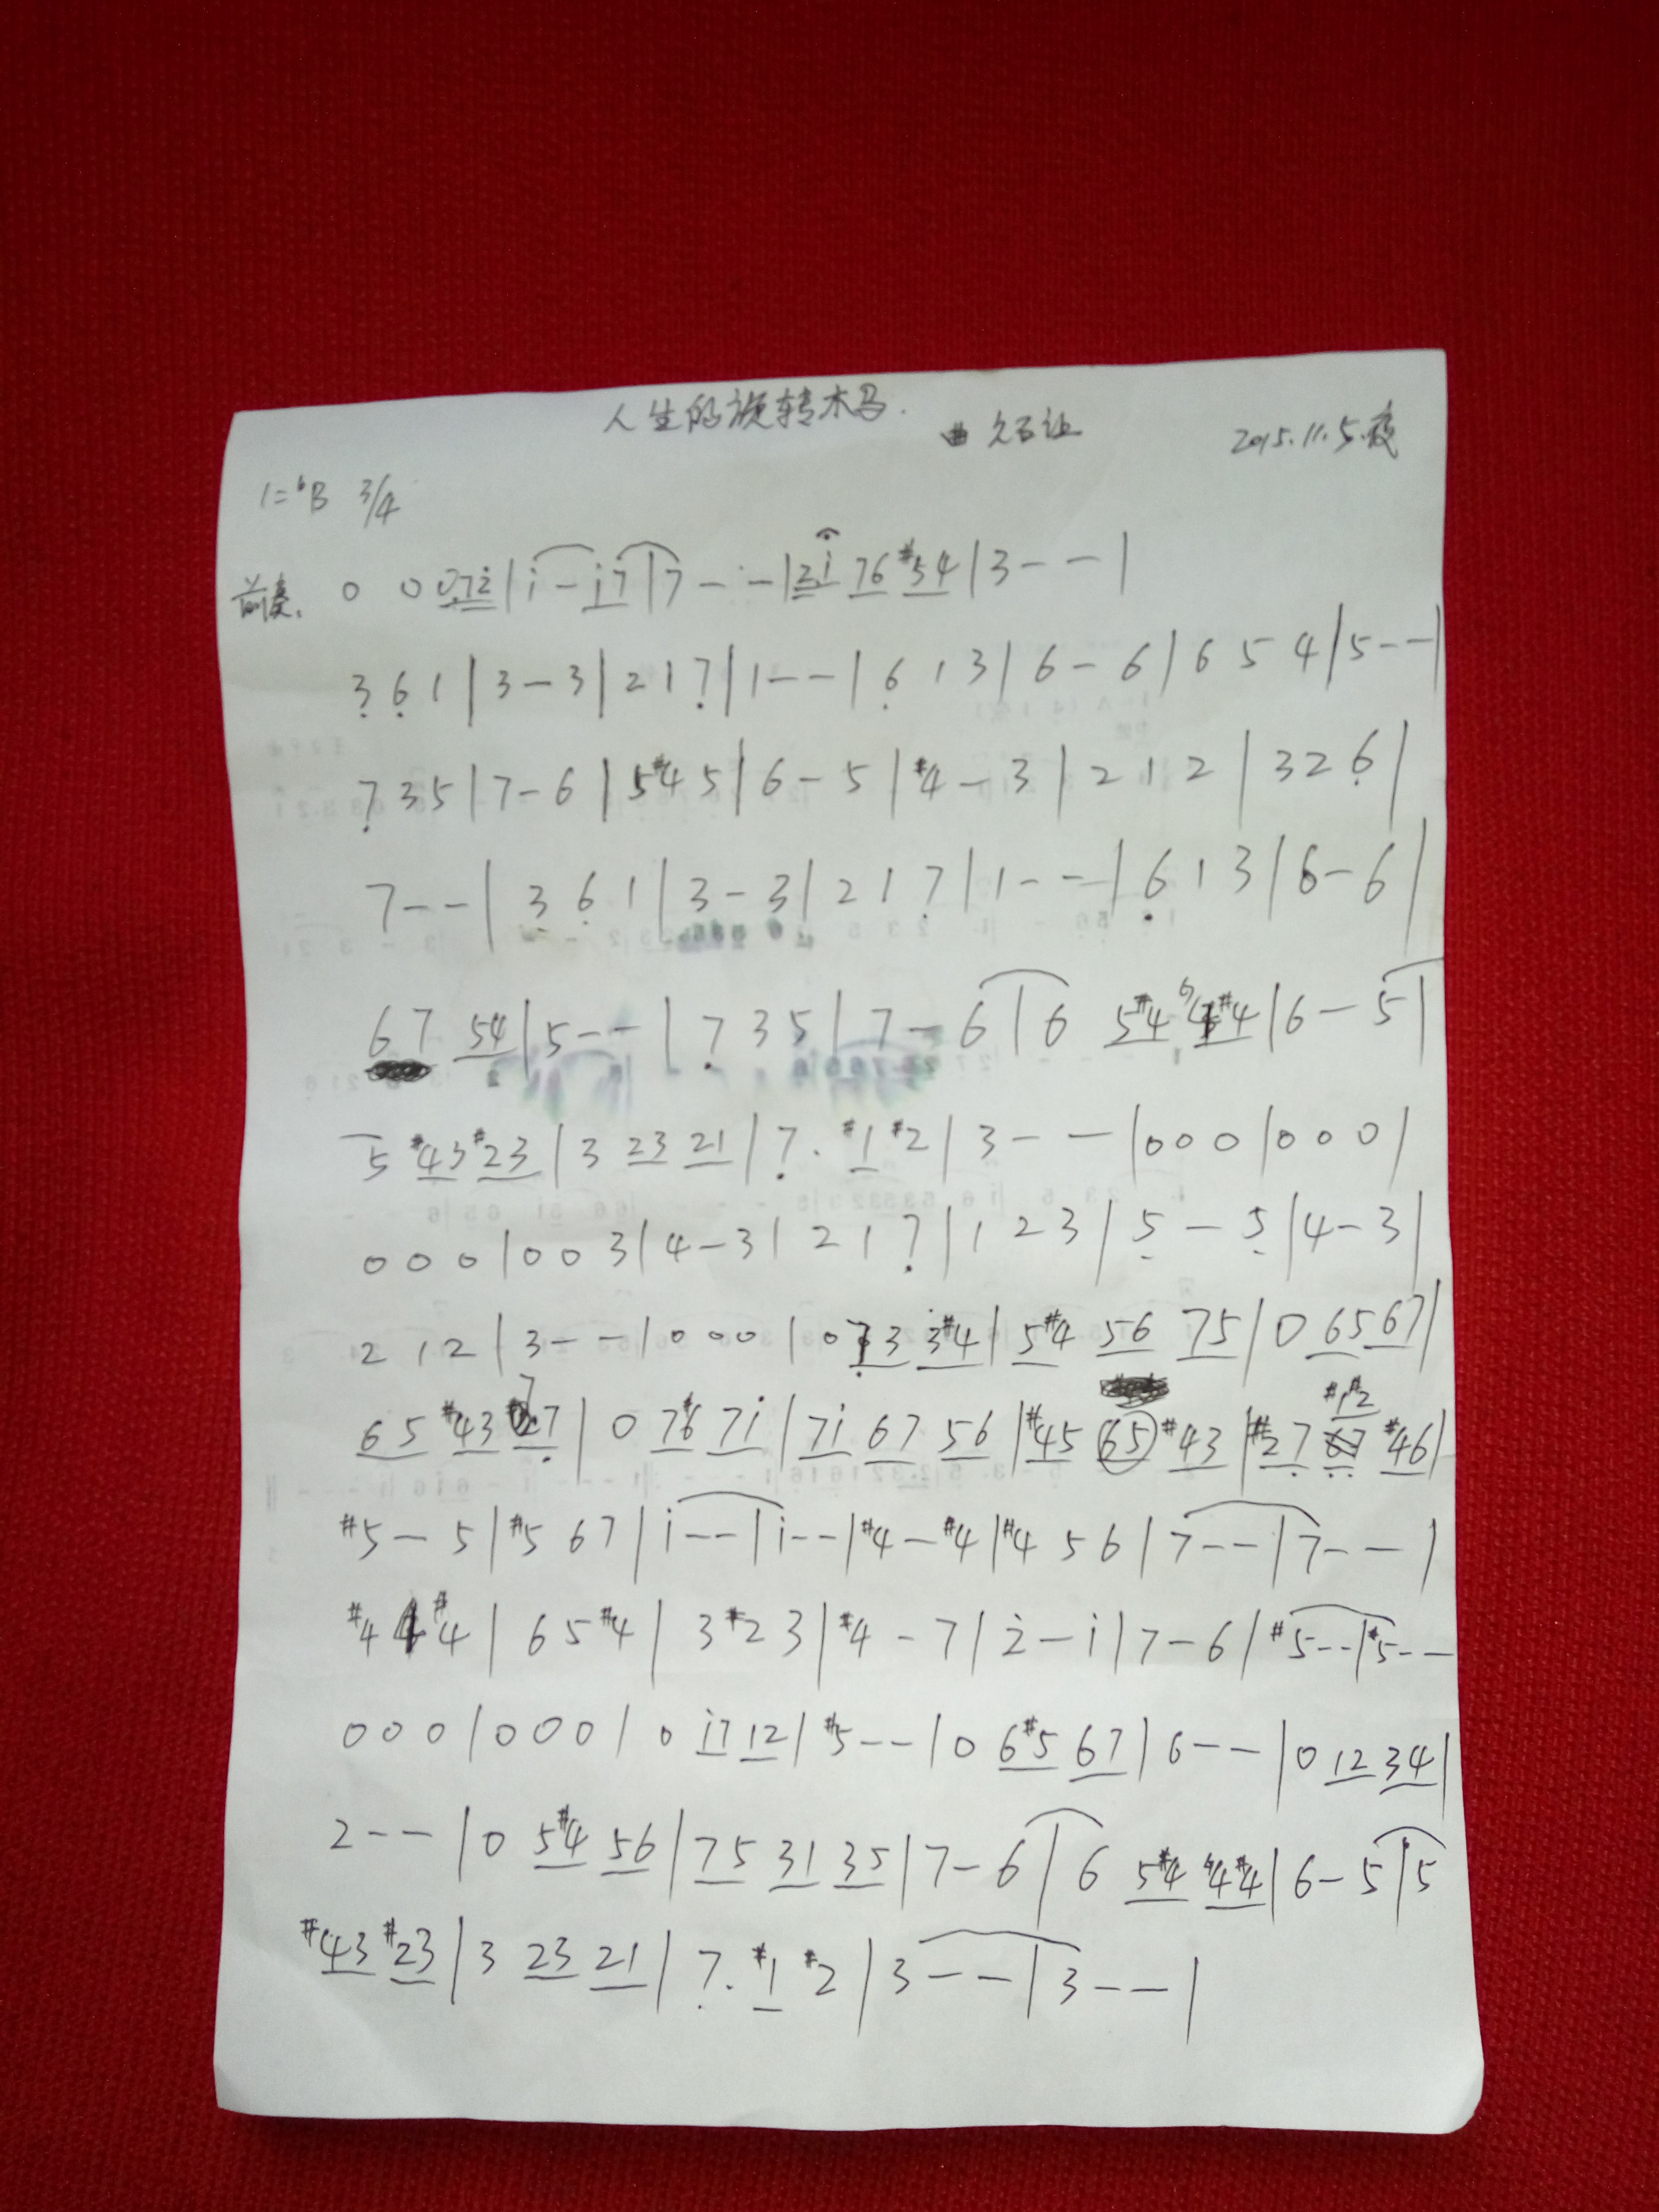 人生的旋转木马.
曲 久石让
2015.11.5.夜
1=ᵇB 3/4
前奏. 0 0 072̇ | i̇ - i̇7 | 7 - - | 2̇i̇ 76 #54 | 3 - - |
3̣ 6̣ 1 | 3 - 3 | 2 1 7̣ | 1 - - | 6̣ 1 3 | 6 - 6 | 6 5 4 | 5 - - |
7̣ 3 5 | 7 - 6 | 5 #4 5 | 6 - 5 | #4 - 3 | 2 1 2 | 3 2 6̣ |
7 - - | 3̣ 6̣ 1 | 3 - 3 | 2 1 7̣ | 1 - - | 6̣ 1 3 | 6 - 6 |
67 54 | 5 - - | 7̣ 3 5 | 7 - 6 | 6 5#4 #4 | 6 - 5 |
5 #43 #23 | 3 23 21 | 7̣. #1 #2 | 3 - - | 0 0 0 | 0 0 0 |
0 0 0 | 0 0 3 | 4 - 3 | 2 1 7̣ | 1 2 3 | 5̣ - 5̣ | 4 - 3 |
2 1 2 | 3 - - | 0 0 0 | 0 7̣3 3#4 | 5#4 56 75 | 0 65 67 |
65 #43 #27̣ | 0 7#6 7i̇ | 7i̇ 67 56 | #45 65 #43 | #27̣ #1#2 #46 |
#5 - 5 | #5 6 7 | i̇ - - | i̇ - - | #4 - #4 | #4 5 6 | 7 - - | 7 - - |
#4 4 #4 | 6 5 #4 | 3 #2 3 | #4 - 7 | 2̇ - i̇ | 7 - 6 | #5 - - | #5 - -
0 0 0 | 0 0 0 | 0 i̇7 12 | #5 - - | 0 6#5 67 | 6 - - | 0 12 34 |
2 - - | 0 5#4 56 | 75 31 35 | 7 - 6 | 6 5#4 4#4 | 6 - 5 | 5
#43 #23 | 3 23 21 | 7̣. #1 #2 | 3 - - | 3 - - |